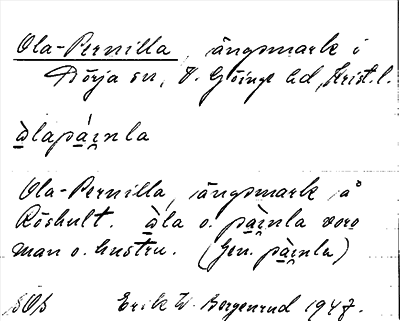 Ola-Pernilla, ängsmark i
Börja sn, V. Göinge hd, Krist. l.
àlapài̯nla
Ola-Pernilla, ängsmark å
Röshult. àla o. pài̯nla voro
man o. hustru. (Gen. pài̯nla)
Erik W. Borgenrud 1947.